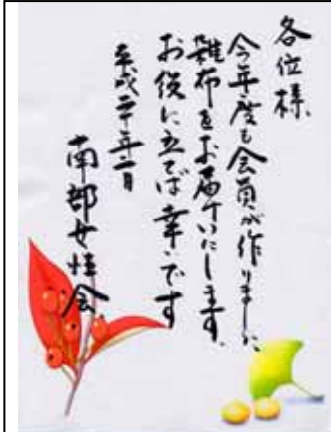 各位様
今年度も会員が作りました
雑布をお届けいたします。
お役に立てば幸いです
平成二十年二月
南部女性会